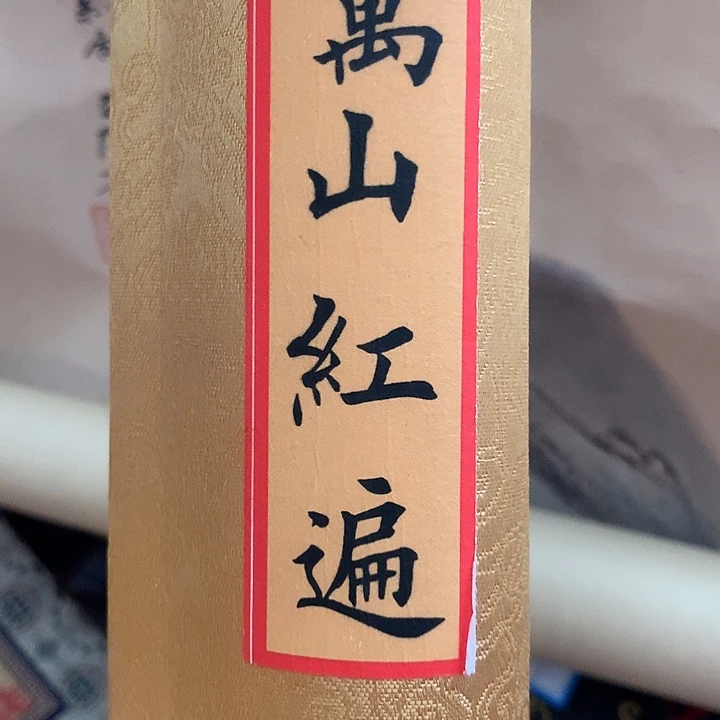 萬山紅遍